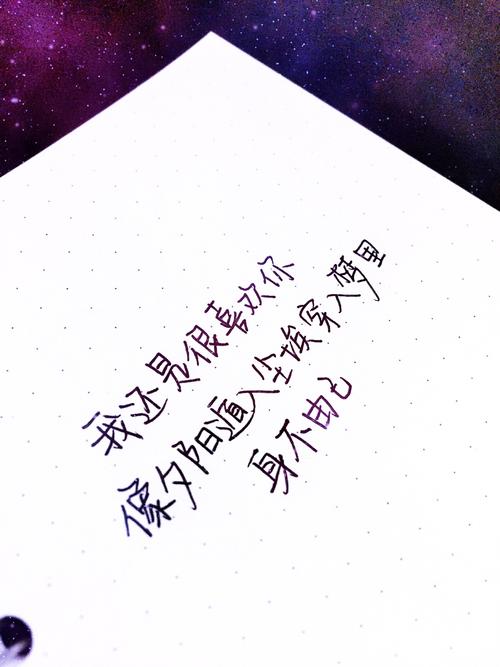 我还是很喜欢你
像夕阳遁入尘埃穿入梦里
身不由己